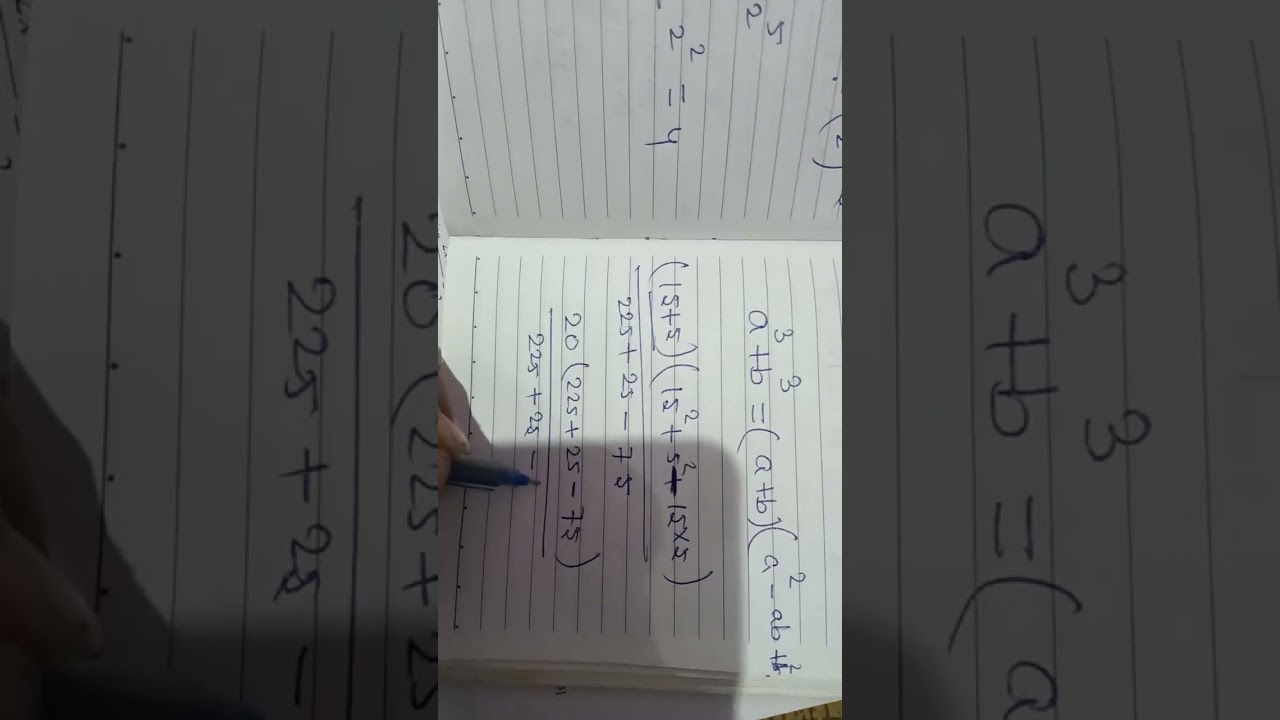 5
2
2² = 4
a³+b³ = (a+b)(a²-ab+b²
(15+5)(15²+5²-15×5)
225+25-75
20(225+25-75)
225+25-